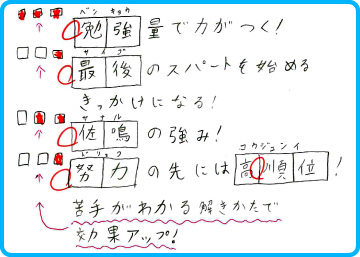 ベン キョウ
勉強量で力がつく!
サイ ゴ
最後のスパートを始める
きっかけになる!
サ ナル
佐鳴の強み!
ド リョク コウジュンイ
努力の先には高順位!
苦手がわかる解きかたで
効果アップ!